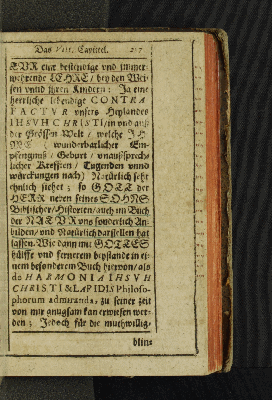 Das VIII. Capittel. 217
TUR eine bestendige vnd immer-
wehrende LEHRE / bey den Wei-
sen vnnd ihren Kindern: Ja eine
herrliche lebendige CONTRA
FACTUR vnsers Heylandes
IHSVH CHRISTI / in vnd auß
der Grossen Welt / welche IH
(wunderbarlicher Em-
pfengnuß / Geburt / vnaußsprech-
licher Kressten / Tugenden vnnd
würckungen nach) Natürlich sehr
ehnlich siehet; so GOTT der
HERR neven seines SOHNS
Biblischer / Historien / auch im Buch
der NATUR vns sonderlich An-
bilden / vnd Natürlich darstellen hat
lassen. Wie dann mit GOTTES
hülffe vnd fernerem beystande in ei-
nem besonderem Buch hiervon / als
de HARMONIA IHSVH
CHRISTI & LAPIDIS Philoso-
phorum admiranda, zu seiner zeit
von mir gnugsam kan erwiesen wer-
den; Jedoch für die muthwillig-
blin-